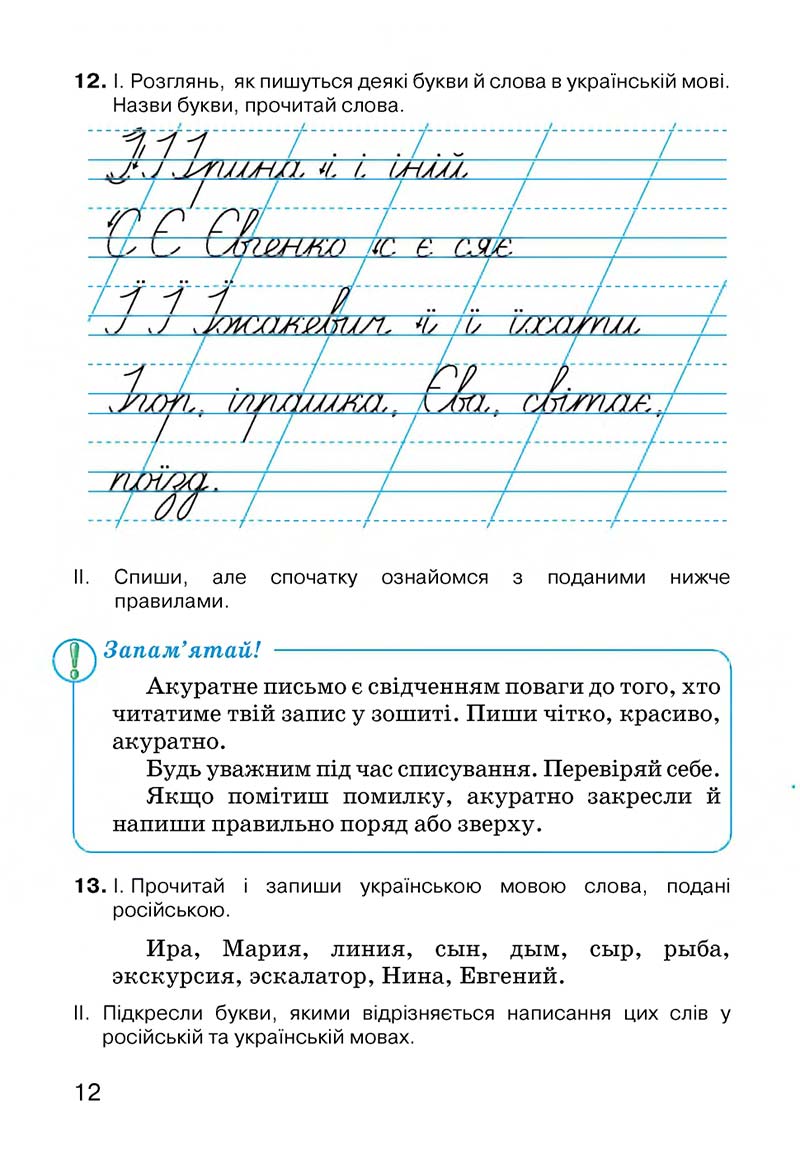 12. І. Розглянь, як пишуться деякі букви й слова в українській мові.
Назви букви, прочитай слова.
І І Ірина і і іній
Є Є Євгенко є є сяє
Ї Ї Їжакевич ї ї їхати
Ігор, іграшка, Єва, світає,
поїзд.
ІІ. Спиши, але спочатку ознайомся з поданими нижче
правилами.
Запам’ятай!
Акуратне письмо є свідченням поваги до того, хто
читатиме твій запис у зошиті. Пиши чітко, красиво,
акуратно.
Будь уважним під час списування. Перевіряй себе.
Якщо помітиш помилку, акуратно закресли й
напиши правильно поряд або зверху.
13. І. Прочитай і запиши українською мовою слова, подані
російською.
Ира, Мария, линия, сын, дым, сыр, рыба,
экскурсия, эскалатор, Нина, Евгений.
ІІ. Підкресли букви, якими відрізняється написання цих слів у
російській та українській мовах.
12